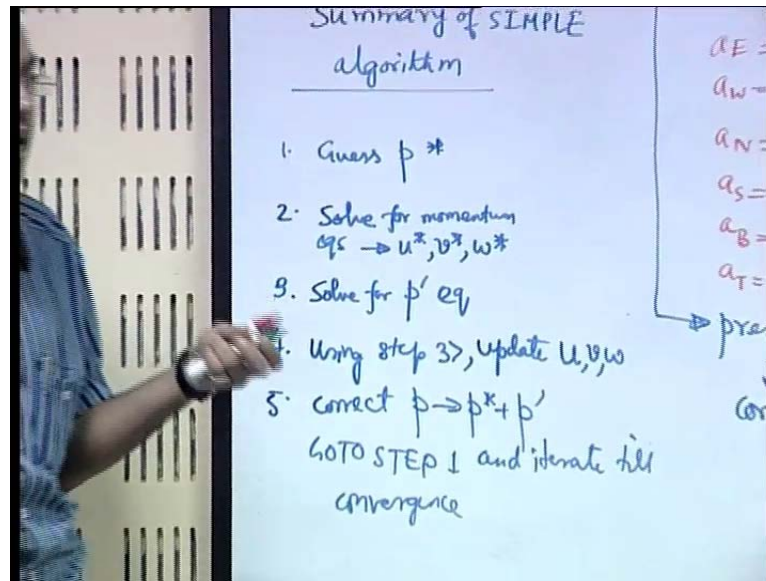 Summary of SIMPLE
algorithm
1. Guess p*
2. Solve for momentum
eqs → u*, v*, w*
3. Solve for p' eq
4. Using step 3>, update u,v,w
5. correct p→p*+p'
GOTO STEP 1 and iterate till
convergence
aE =
aW =
aN =
aS =
aB =
aT =
→ pre
cor